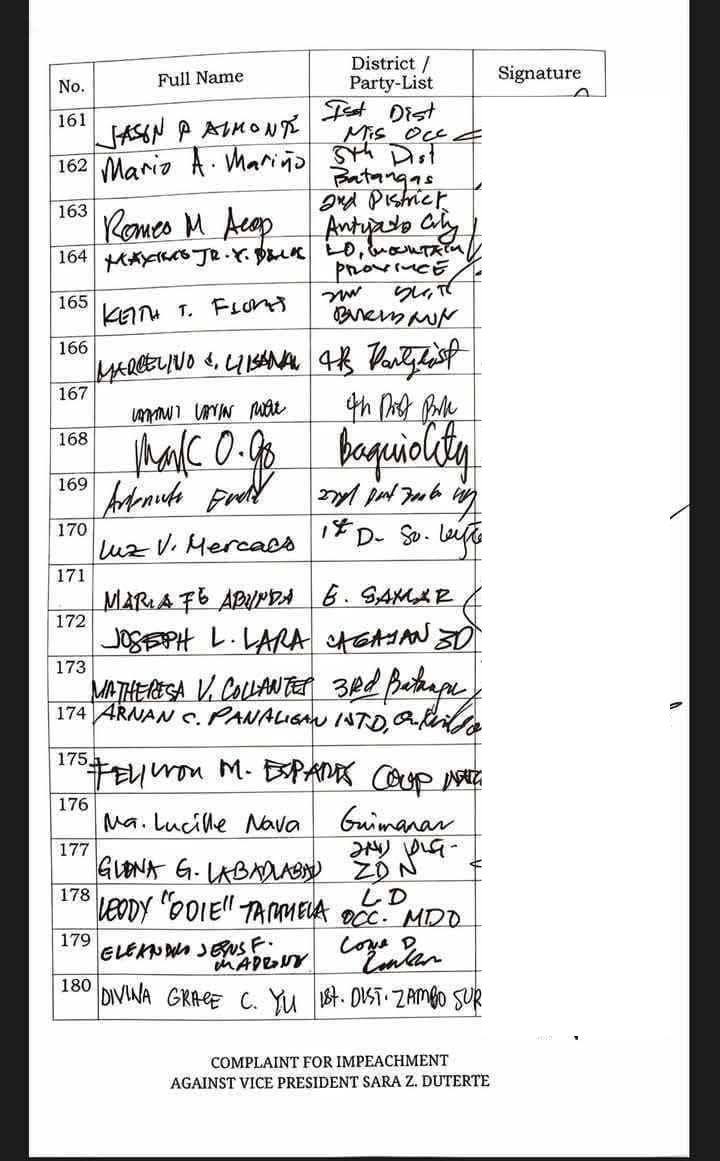 No. Full Name District / Party-List Signature
161 JASON P ALMONTE 1st Dist
Mis Occ
162 Mario A. Mariño 5th Dist
Batangas
163 Romeo M Acop 2nd District
Antipolo City
164 MAXIMO JR. Y. LD, MOUNTAIN
PROVINCE
165 KEITH T. FLORES
166 MARCELINO C. LIBANAN 4Ps Partylist
167 4th Dist
168 Mark O. go Baguio City
169 2nd
170 Luz V. Mercado 1st D- So. Leyte
171 MARIA FE ABUNDA E. SAMAR
172 JOSEPH L. LARA CAGAYAN 3D
173 MA THERESA V. COLLANTES 3Rd Batangas
174 ARNAN C. PANALIGAN 1ST D, Or. Mindoro
175 FELIMON M. ESPARES COOP NATCO
176 Ma. Lucille Nava Guimaras
177 GLONA G. LABADLABAD 2ND DIST-
ZDN
178 LEODY "ODIE" TARRIELA LD
OCC. MDO
179 ELEANDRO JESUS F. MADRONA Lone D
180 DIVINA GRACE C. YU 1st. DIST. ZAMBO SUR
COMPLAINT FOR IMPEACHMENT
AGAINST VICE PRESIDENT SARA Z. DUTERTE